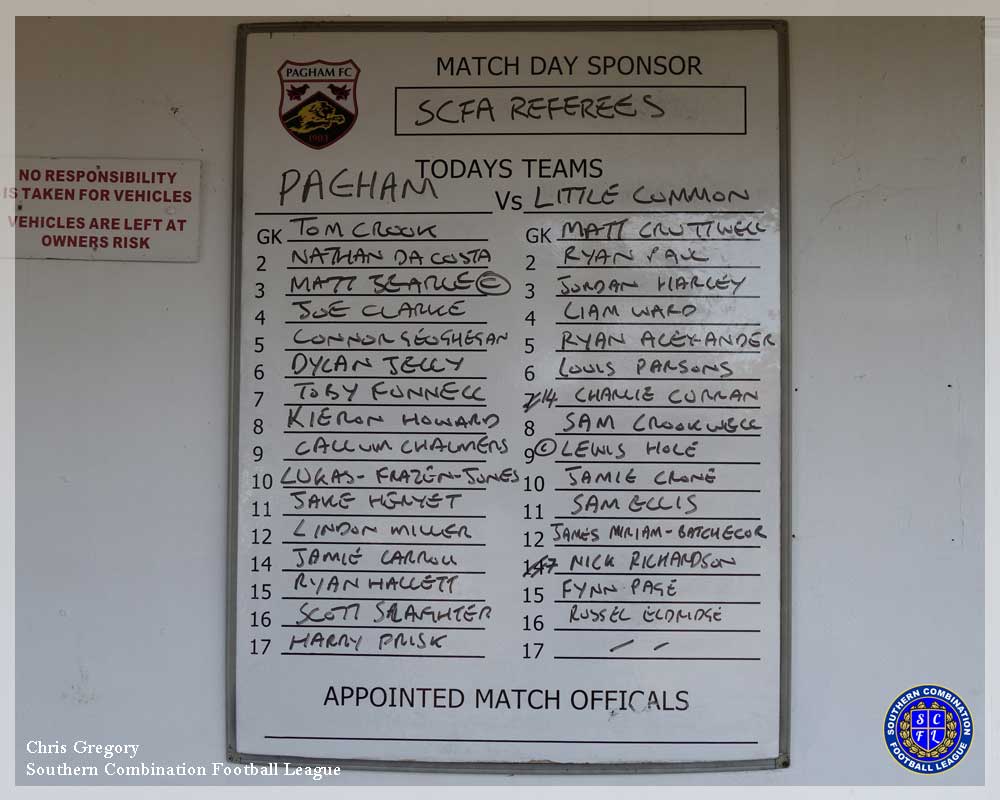 PAGHAM FC
1903
MATCH DAY SPONSOR
SCFA REFEREES
TODAYS TEAMS
PAGHAM Vs LITTLE COMMON
GK TOM CROOK GK MATT CRUTTWELL
2 NATHAN DA COSTA 2 RYAN PAUL
3 MATT SEARLE C 3 JORDAN HARLEY
4 JOE CLARKE 4 LIAM WARD
5 CONNOR GEOGHEGAN 5 RYAN ALEXANDER
6 DYLAN JELLY 6 LOUIS PARSONS
7 TOBY FUNNELL 14 CHARLIE CURRAN
8 KIERON HOWARD 8 SAM CROOKWELL
9 CALLUM CHALMERS 9 C LEWIS HOLE
10 LUKAS-FRAZEN-JONES 10 JAMIE CRONE
11 JAKE HERYET 11 SAM ELLIS
12 LINDON MILLER 12 JAMES MIRIAM-BATCHELOR
14 JAMIE CARROLL 7 NICK RICHARDSON
15 RYAN HALLETT 15 FYNN PAGE
16 SCOTT SLAUGHTER 16 RUSSEL ELDRIDGE
17 HARRY PRISK 17 - -
APPOINTED MATCH OFFICALS
NO RESPONSIBILITY
IS TAKEN FOR VEHICLES
VEHICLES ARE LEFT AT
OWNERS RISK
Chris Gregory
Southern Combination Football League
SOUTHERN COMBINATION
SCFL
FOOTBALL LEAGUE